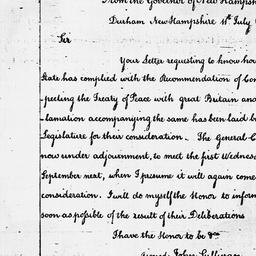 From the Governor of New Hampsh
Durham New Hampshire 1st July
Sir
Your Letter requesting to know how
State has complied with the Recommendation of Con
-pecting the Treaty of Peace with great Britain and
-lamation accompanying the same has been laid be
Legislature for their consideration. The General C
now under adjournment, to meet the first Wednesd
September next, when I presume it will again come
consideration. I will do myself the Honor to inform
soon as possible of the result of their Deliberations
I have the Honor to be &ca
signed John Sullivan